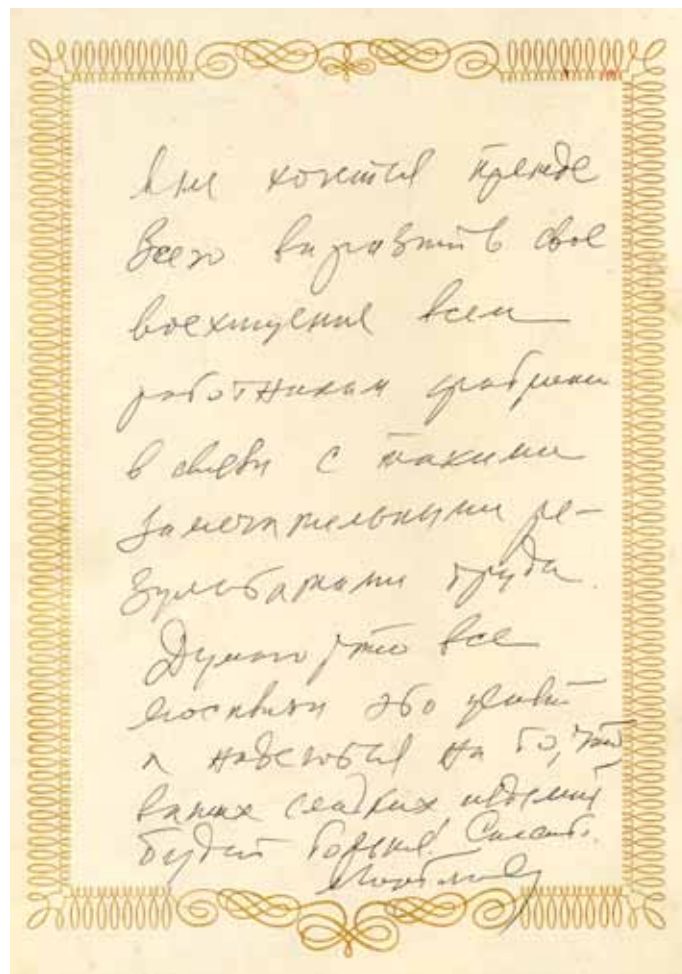 Мне хочется прежде
всего выразить свое
восхищение всем
работникам фабрики
в связи с такими
замечательными ре-
зультатами труда.
Думаю, что все
москвичи это ценят
и надеются на то, что
ваших сладких изделий
будет больше! Спасибо.